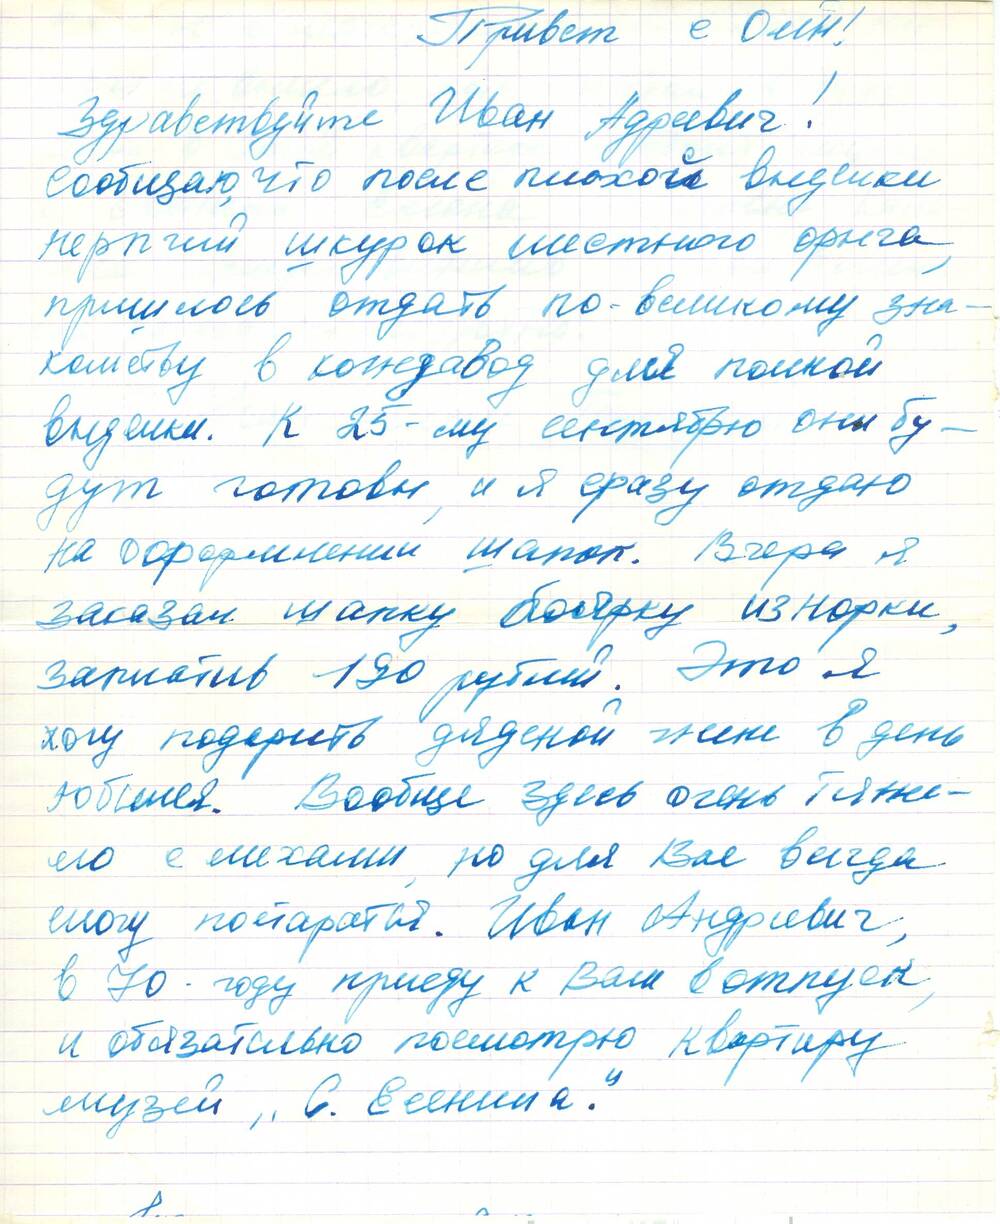 Привет с ОМН!
Здравствуйте Иван Адреевич!
Сообщаю, что после плохой выделки
нерпчий шкурок местного орыса,
пришлось отдать по-великому зна-
комству в кожзавод для полной
выделки. К 25-му сентябрю они бу-
дут готовы, и я сразу отдаю
на оформлении шапок. Вчера я
заказал шапку боярку из норки,
заплатив 190 рублей. Это я
хочу подарить дяденой жене в день
юбилея. Вообще здесь очень тяже-
ло с мехами, но для Вас всегда
смогу постараться. Иван Андреевич,
в 70-году приеду к Вам в отпуск,
и обязательно посмотрю квартиру
музей „С. Есенина."